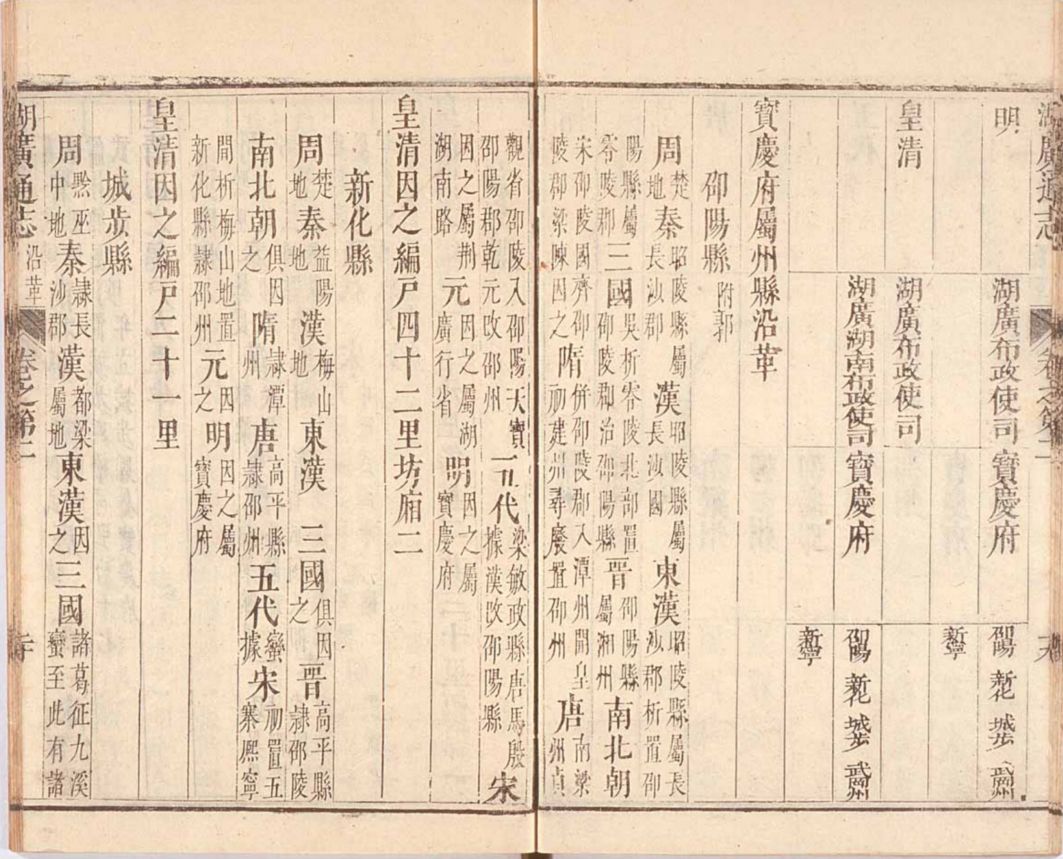 湖廣通志 卷之第二
明 湖廣布政使司 寶慶府 邵陽 新化 城步 武岡州
新寧
皇清 湖廣布政使司
湖廣湖南布政使司 寶慶府 邵陽 新化 城步 武岡州
新寧
寶慶府屬州縣沿革
邵陽縣 附郭
周楚地 秦昭陵縣屬長沙郡 漢昭陵縣屬長沙國 東漢昭陵縣屬長沙郡析置邵
陽縣屬零陵郡 三國吳析零陵北部置邵陵郡治邵陽縣 晉邵陽縣屬湘州 南北朝
宋邵陵國齊邵陵郡梁陳因之 隋併邵陵郡入潭州開皇初建州尋廢置邵州 唐南梁州貞
觀省邵陵入邵陽天寶邵陽郡乾元改邵州 五代梁敏政縣唐馬殷據漢改邵陽縣 宋
因之屬荊湖南路 元因之屬湖廣行省 明因之屬寶慶府
皇清因之編戶四十二里坊廂二
新化縣
周楚地 秦益陽地 漢梅山地 東漢 三國俱因之 晉高平縣隷邵陵
南北朝俱因之 隋隷潭州 唐高平縣隷邵州 五代蠻據 宋初置五寨熙寧
間析梅山地置新化縣隷邵州 元因之 明因之屬寶慶府
皇清因之編戶二十一里
城步縣
周黔巫中地 秦隷長沙郡 漢都梁屬地 東漢因之 三國諸葛征九溪蠻至此有諸
湖廣通志 沿革 卷之第二